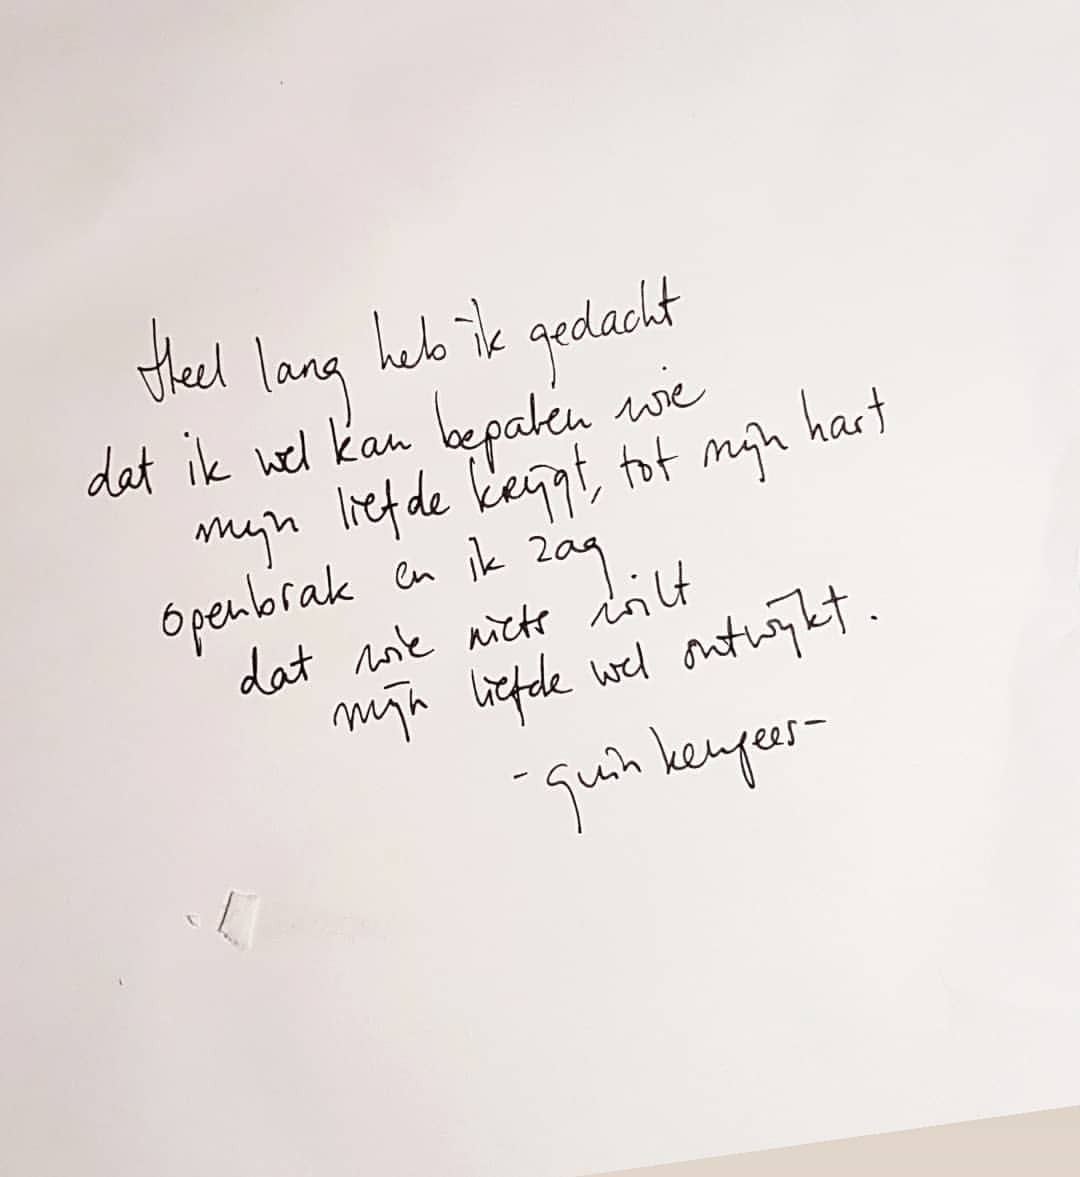 Heel lang heb ik gedacht
dat ik wel kan bepalen wie
mijn liefde krijgt, tot mijn hart
openbrak en ik zag
dat wie niets wilt
mijn liefde wel ontwijkt.
- quin kengees -